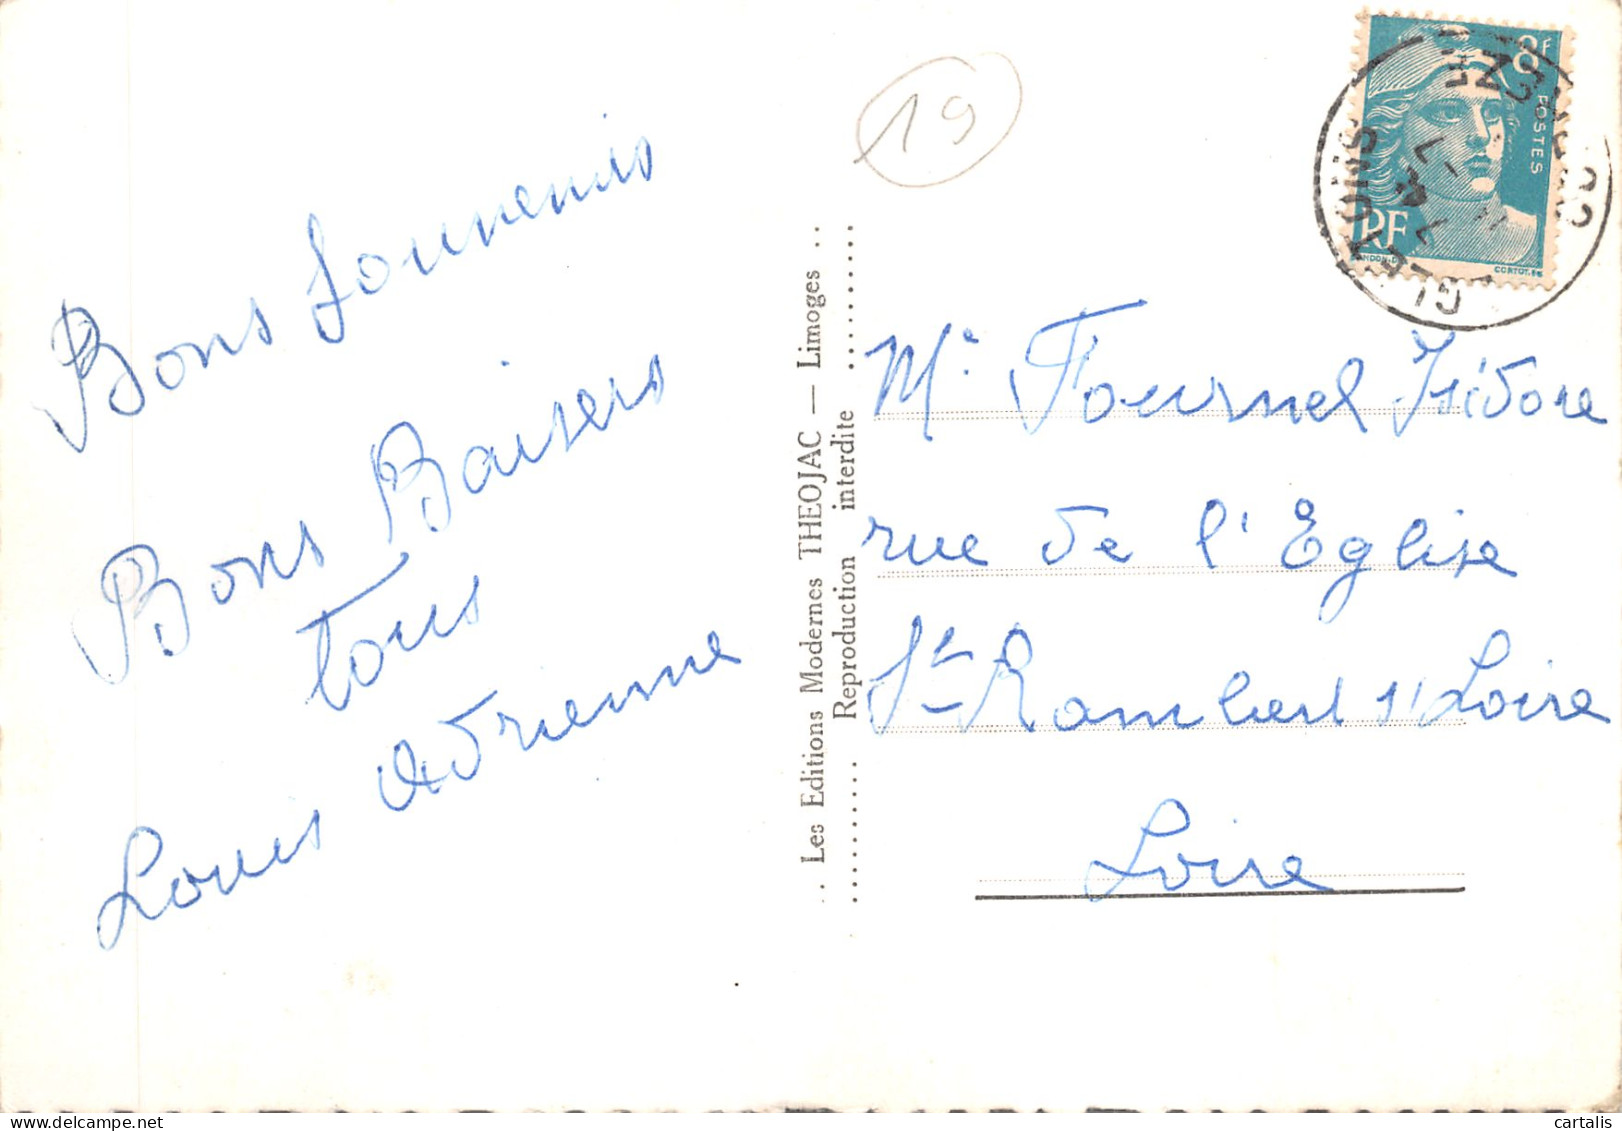 Bons Souvenirs
Bons Baisers
tous
Louis Adrienne
.. Les Editions Modernes THEOJAC — Limoges ..
Reproduction interdite
19
8F
POSTES
RF
CORTOT
GLENONS
CORREZE
Mr Fournel Isidore
rue de l'Eglise
St-Rambert s/ Loire
Loire
cartalis